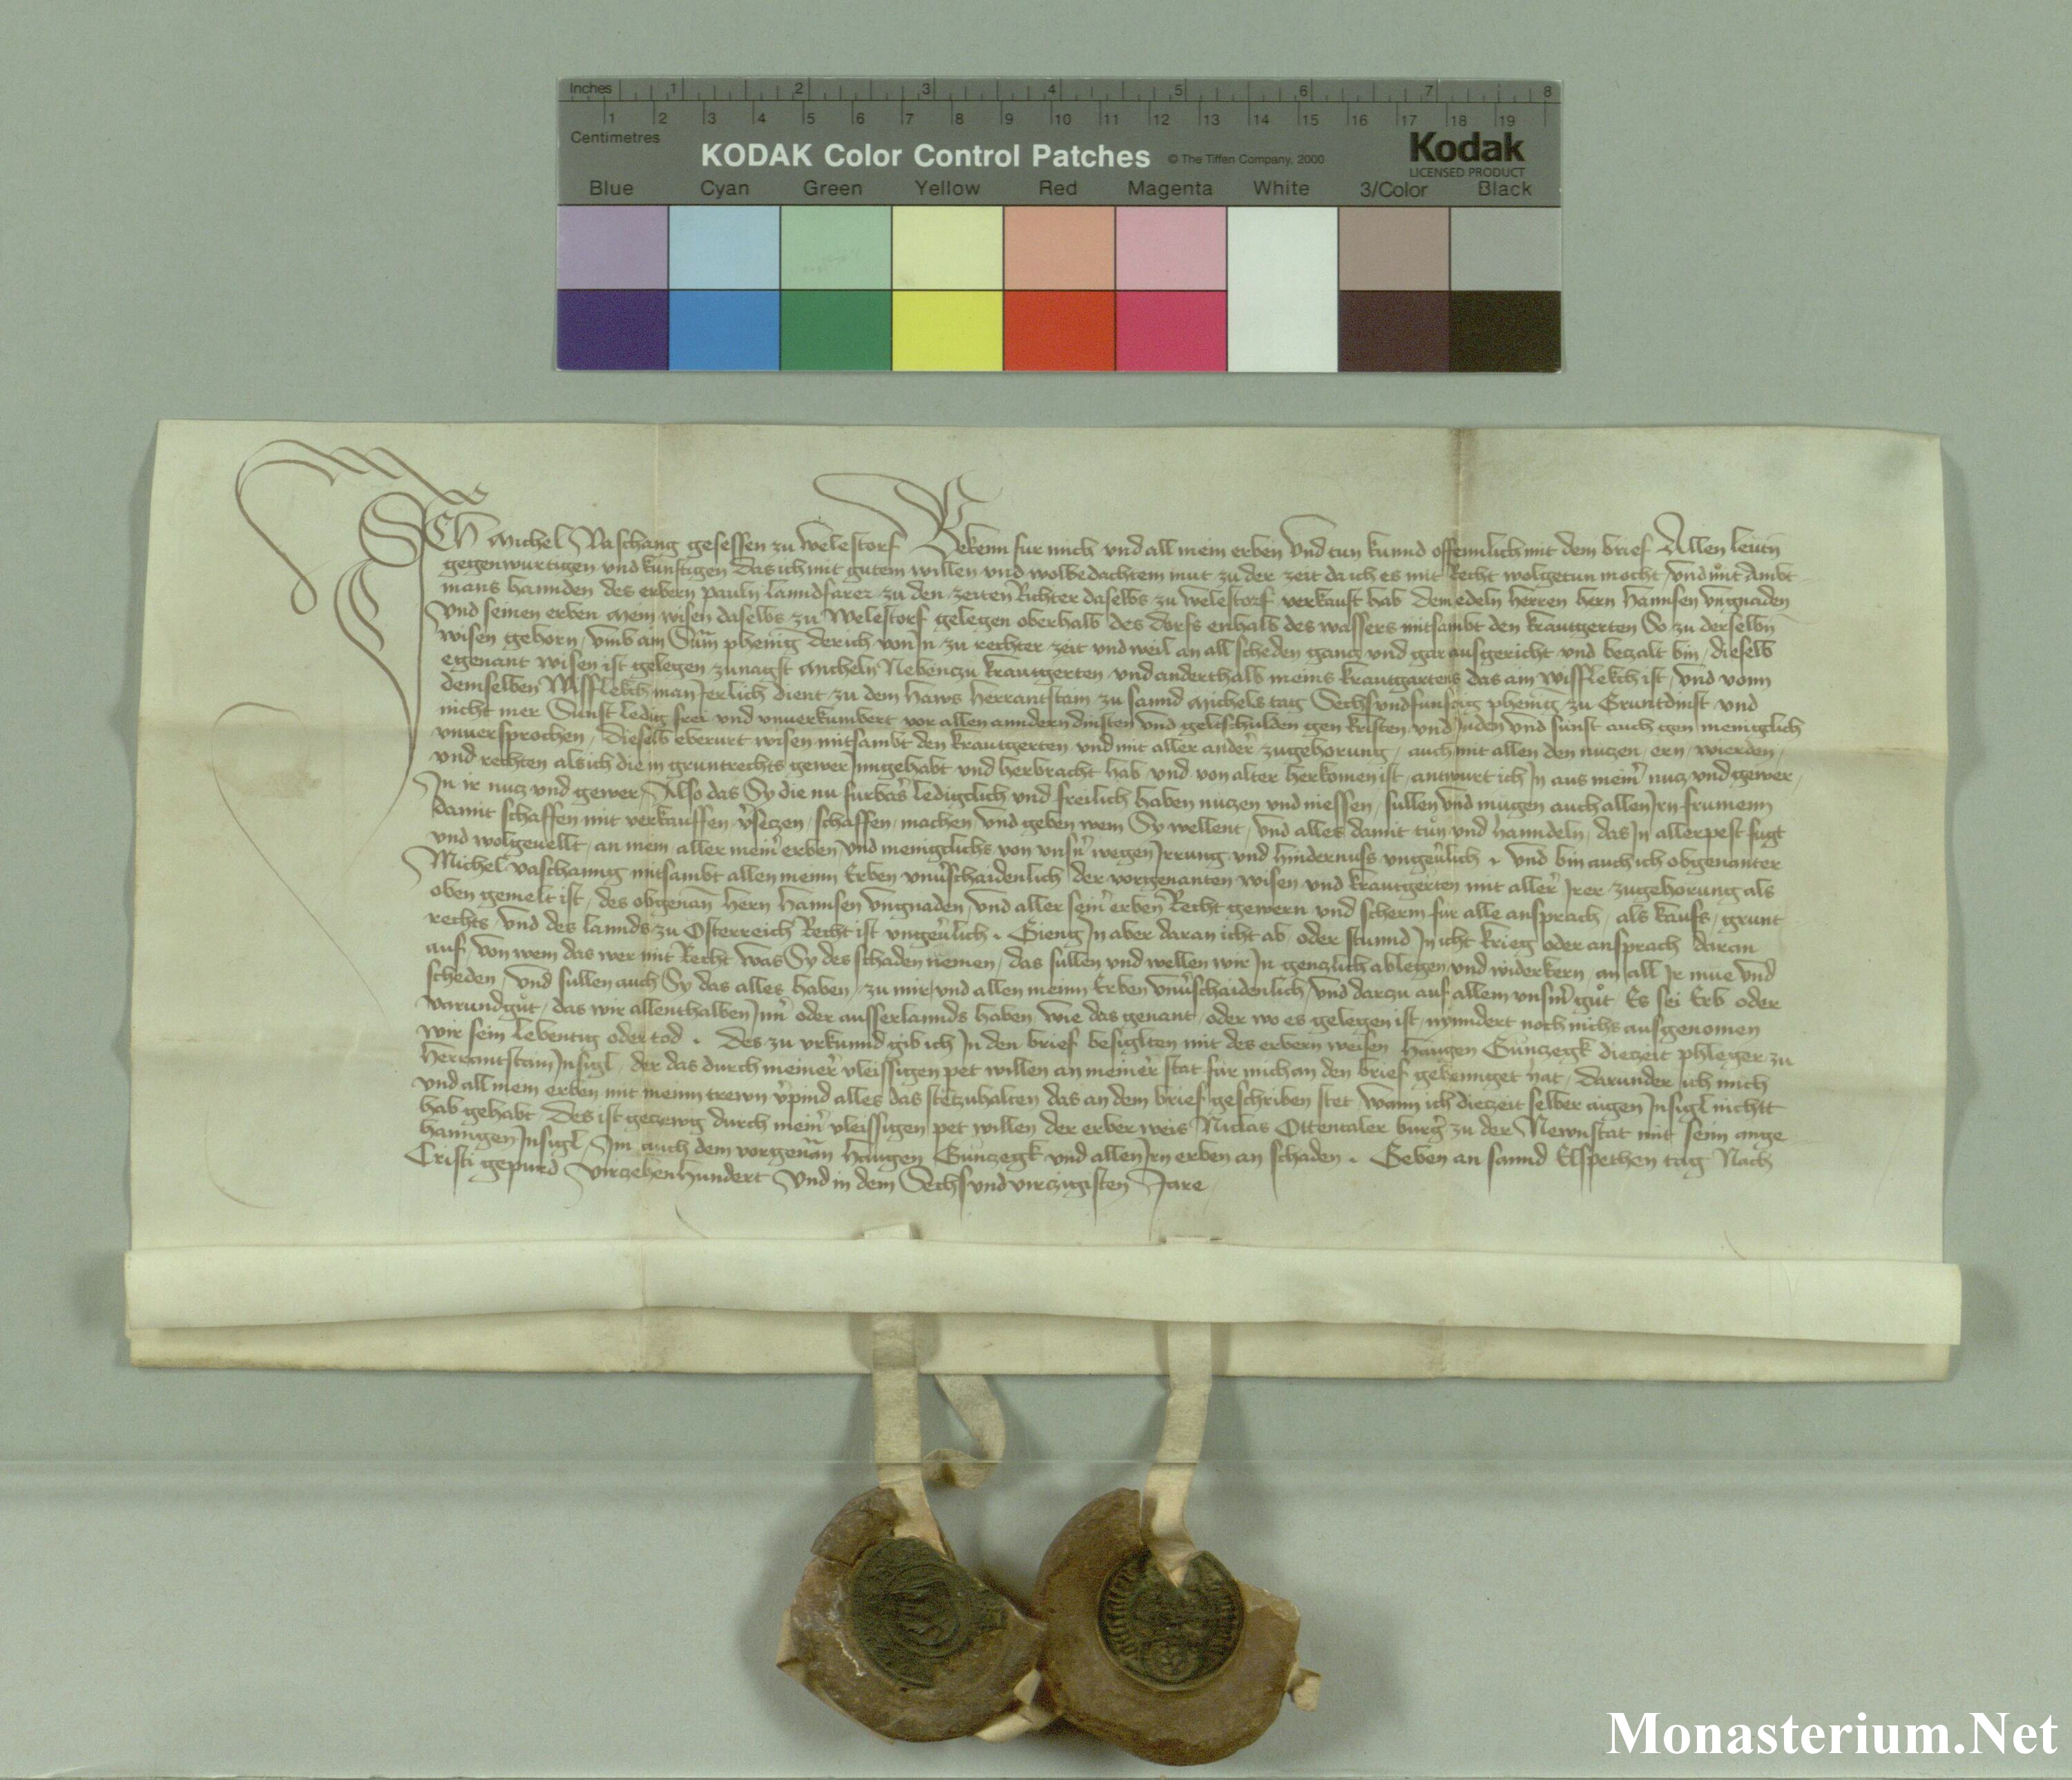 Inches 1 2 3 4 5 6 7 8
1 2 3 4 5 6 7 8 9 10 11 12 13 14 15 16 17 18 19
Centimetres
KODAK Color Control Patches © The Tiffen Company, 2000 Kodak
LICENSED PRODUCT
Blue Cyan Green Yellow Red Magenta White 3/Color Black
ICH Michel Vaschang gesessen zu Welestorf Bekenn fur mich vnd all mein erben Vnd tun kunnd offennlich mit dem brief Allen leutn
gegenwurtigen vnd kunftigen Das ich mit gutem willen vnd wolbedachtem mut zu der zeit da ich es mit Recht wolgetun mocht vnd mit Ambt
mans hannden des erbern pauln lanndfarer zu den zeiten Richter daselbs zu Welestorf verkauft hab dem edeln herren hern Hannsen vngnaden
Vnd seinen erben Mein wisen daselbs zu Welestorf gelegen oberhalb des dorfs enhalb des wassers mitsambt den krautgerten So zu derselbn
wisen gehorn vmb ain Sum phenig der ich von In zu rechter zeit vnd weil an all scheden gancz vnd gar ausgericht vnd beczalt bin dieselb
egenant wisen ist gelegen zunagst Micheln Nebenczu krautgerten vnd anderthalb meins krautgartens das ain Wifflekch ist vnd vonn
demselben Wifflekch man Jerlich dient zu dem Haws Herrantstain zu sannd Michels tag Sechsvndfunfczig phenig zu Gruntdinst vnd
nicht mer Sunst ledig frei vnd vnuerkumbert vor allen anndern dinsten vnd geltschulden gen kristen vnd Juden vnd sunst auch gen meniglich
vnuersprochen dieselb eberurt wisen mitsambt den krautgerten vnd mit aller ander zugehorung auch mit allen den nuczen ern wierden
vnd rechten als ich die in gruntrechts gewer Inngehabt vnd herbracht hab vnd von alter herkomen ist antwurt ich In aus meinr nucz vnd gewer
In ir nucz vnd gewer Also das Sy die nu furbas ledigclich vnd freilich haben nuczen vnd niessen sullen vnd mugen auch allen Irn frumenn
damit schaffen mit verkauffen verseczen schaffen machen vnd geben wem Sy wellent vnd alles damit tun vnd hanndeln das In allerpest fugt
vnd wolgeuellt an mein aller meinr erben vnd menigclichs von vnsern wegen Irrung vnd hindernuss vngeuerlich vnd bin auch ich obgenanter
Michel vaschanng mitsambt allen meinn Erben vnuerschaidenlich der vorgenanten wisen vnd krautgerten mit aller Irer zugehorung als
oben gemelt ist des obgenan hern Hannsen vngnaden vnd aller seinr erben Recht gewern vnd scherm fur alle ansprach als kaufs grunt
rechts vnd des lannds zu Osterreich Recht ist vngeuerlich Gieng In aber daran icht ab oder stuennd In icht krieg oder ansprach daran
auf von wem das wer mit Recht was Sy des schaden nemen das sullen vnd wellen wir In genczlich ablegen vnd widerkern an all Ir mue vnd
scheden vnd sullen auch Sy das alles haben zu mir vnd allen meinn Erben vnuerschaidenlich vnd darzu auf allem vnserm gut Es sei Erb oder
varundgut das wir allenthalben Inner oder ausserlannds haben wie das genant oder wo es gelegen ist nynndert noch nichs ausgenomen
wir sein lebentig oder tod Des zu vrkunnd gib ich In den brief besiglten mit des erbern weisen Haugen Gunczegk dieczeit phleger zu
Herrantstain Insigl der das durch meiner vleissigen pet willen an meiner stat fur mich an den brief gehenngt hat darunder ich mich
vnd all mein erben mit meinn trewn verpind alles das stetzuhalten das an dem brief geschriben stet Wann ich dieczeit selber aigen Insigl nichtt
hab gehabt Des ist geczewg durch meinr vleissigen pet willen der erber weis Niclas Ottentaler burger zu der Newnstat mit seim ange
hanngen Insigl Im auch dem vorgenan Haugen Gunczegk vnd allen Irn erben an schaden Geben an sannd Elspethen tag Nach
Cristi gepurd Virczehenhundert Vnd in dem Sechsvndvirczigisten Jare
Monasterium.Net